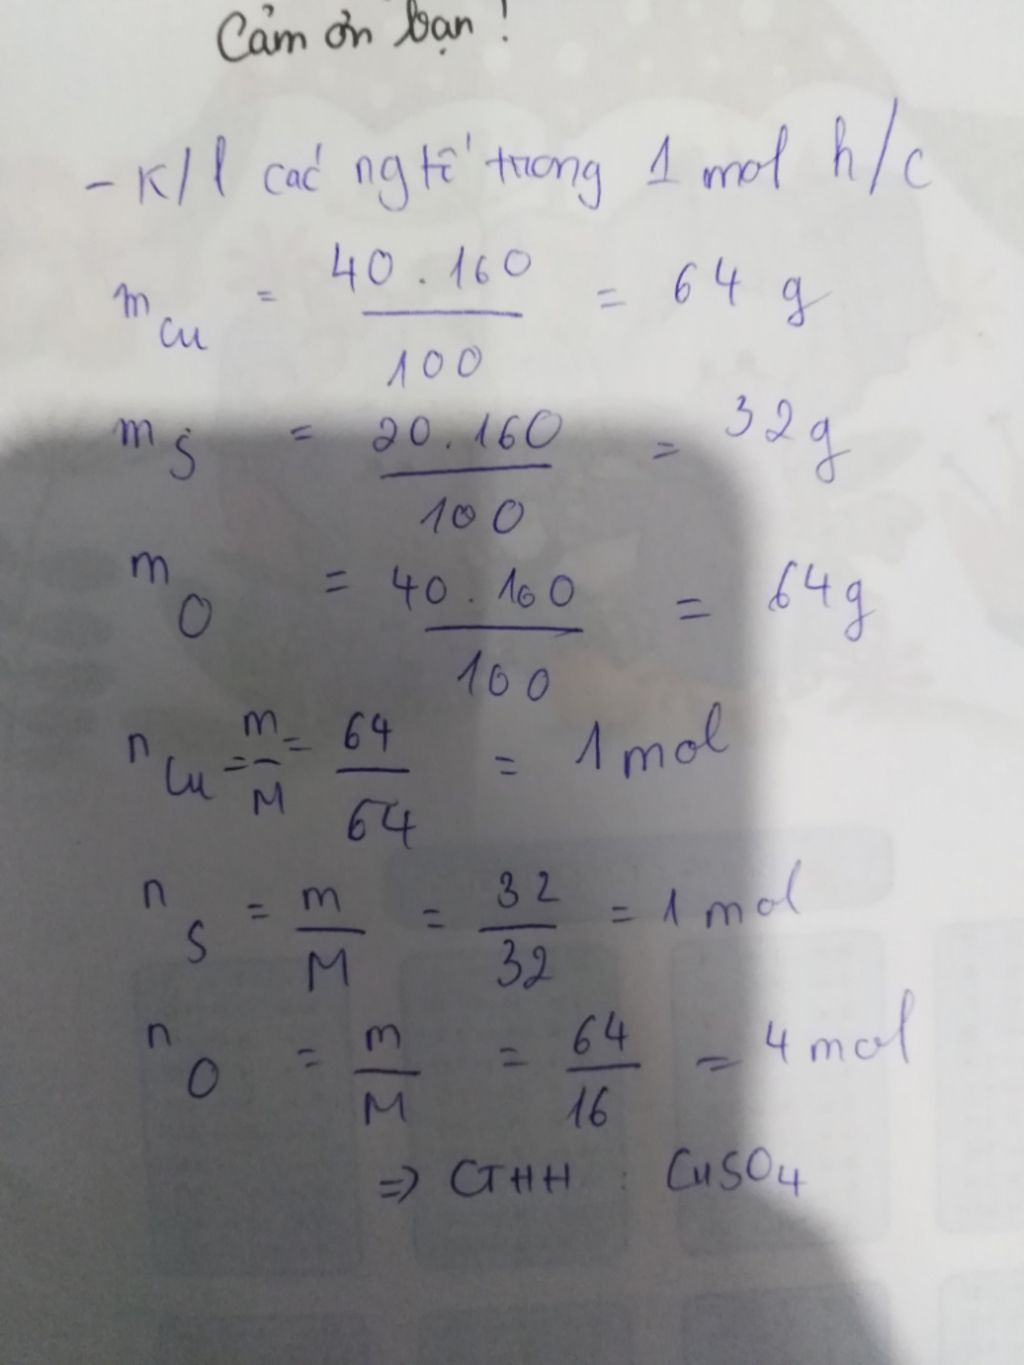 Cảm ơn bạn!
- K/l các ng tố trong 1 mol h/c
m Cu = 40.160 / 100 = 64 g
m S = 20.160 / 100 = 32g
m O = 40.160 / 100 = 64g
n Cu = m / M = 64 / 64 = 1 mol
n S = m / M = 32 / 32 = 1 mol
n O = m / M = 64 / 16 = 4 mol
=> CTHH : CuSO4